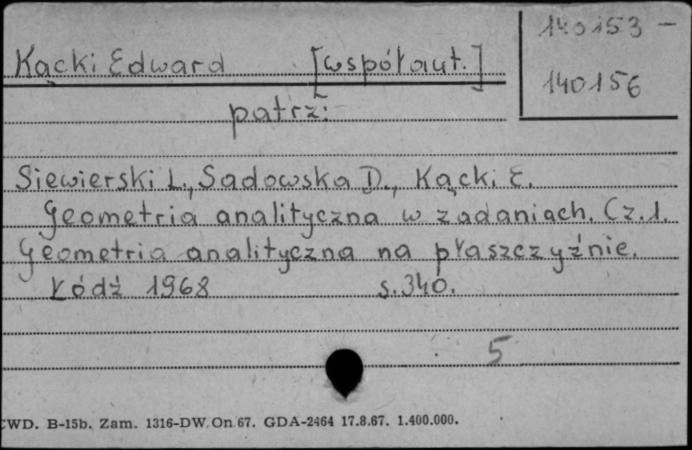 140153 -
Kącki Edward [współaut.]
140156
patrz:
Siewierski L., Sadowska D., Kącki E.
Geometria analityczna w zadaniach. Cz.1.
Geometria analityczna na płaszczyźnie.
Łódź 1968 s.340.
5
CWD. B-15b. Zam. 1316-DW. On 67. GDA-2464 17.8.67. 1.400.000.